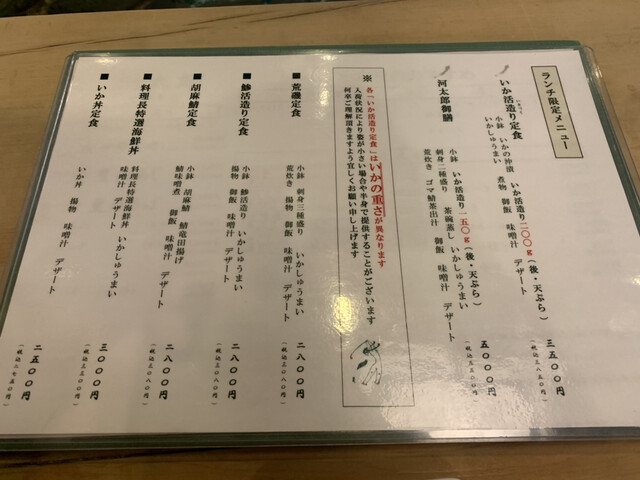 ランチ限定メニュー
いか活造り定食
小鉢 いかの沖漬 いか活造り二〇〇g（後・天ぷら）
いかしゅうまい 煮物 御飯 味噌汁 デザート
三五〇〇円
（税込三八五〇円）
河太郎御膳
小鉢 いか活造り一五〇g（後・天ぷら）
刺身二種盛り 茶碗蒸し いかしゅうまい
荒炊き ゴマ鯖茶出汁 御飯 味噌汁 デザート
五〇〇〇円
（税込五五〇〇円）
※各「いか活造り定食」はいかの重さが異なります
入荷状況により姿が小さい場合や半身で提供することがございます
何卒ご理解頂きますよう宜しくお願い申し上げます
■荒磯定食
小鉢 刺身三種盛り いかしゅうまい
荒炊き 揚物 御飯 味噌汁 デザート
二八〇〇円
（税込三〇八〇円）
■鯵活造り定食
小鉢 鯵活造り いかしゅうまい
揚物 御飯 味噌汁 デザート
二八〇〇円
（税込三〇八〇円）
■胡麻鯖定食
小鉢 胡麻鯖 鯖竜田揚げ
鯖味噌煮 御飯 味噌汁 デザート
二八〇〇円
（税込三〇八〇円）
■料理長特選海鮮丼
料理長特選海鮮丼 いかしゅうまい
味噌汁 デザート
三〇〇〇円
（税込三三〇〇円）
■いか丼定食
いか丼 揚物 味噌汁 デザート
二五〇〇円
（税込二七五〇円）